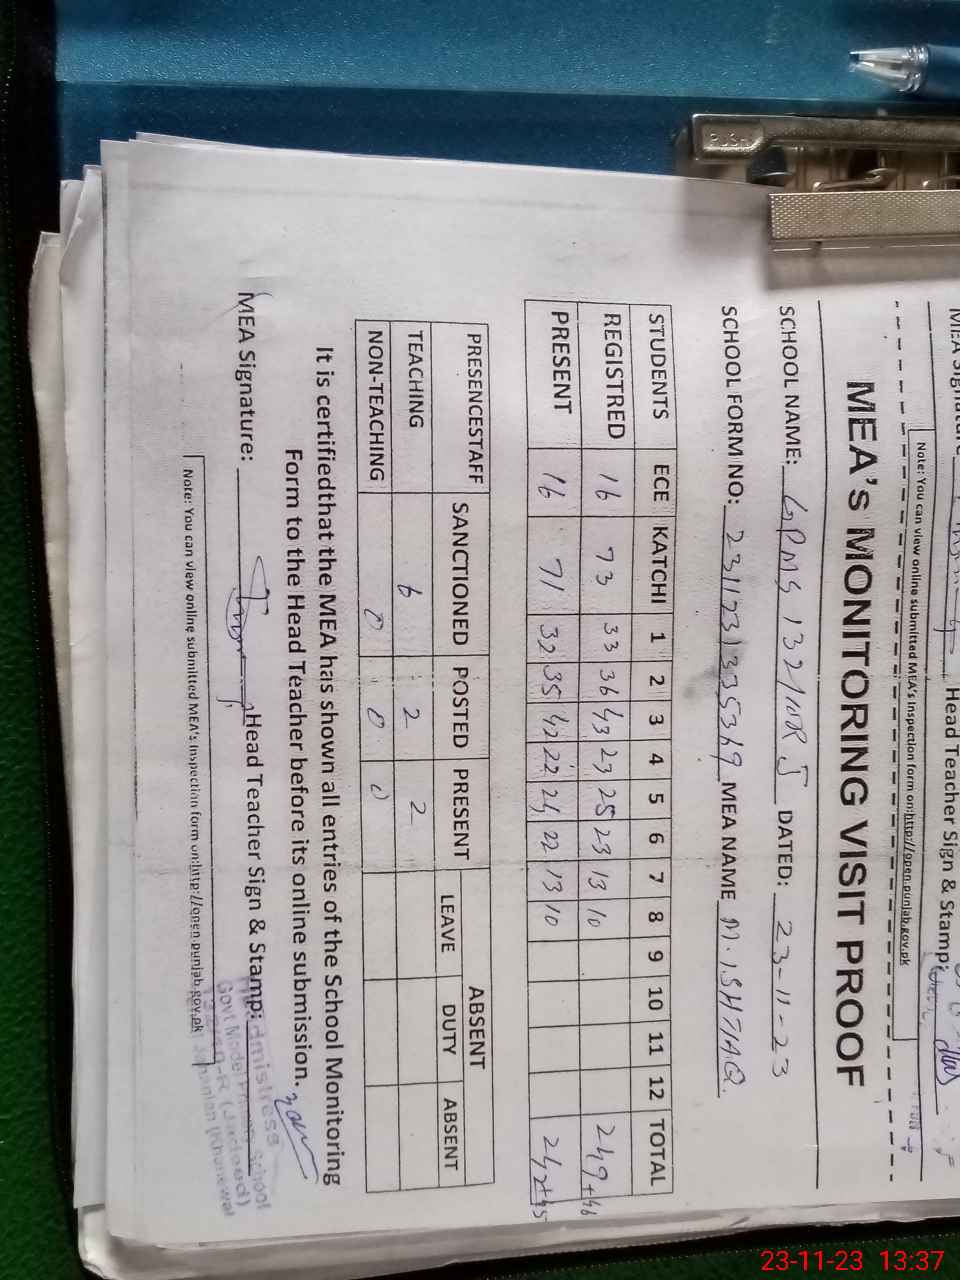 MEA Signature
Head Teacher Sign & Stamp:
Note: You can view online submitted MEA's Inspection form on:http://open.punjab.gov.pk
MEA's MONITORING VISIT PROOF
SCHOOL NAME: GPMS 132/10R J DATED: 23-11-23
SCHOOL FORM NO: MEA NAME M.ISHTIAQ.
STUDENTS ECE KATCHI 1 2 3 4 5 6 7 8 9 10 11 12 TOTAL
REGISTRED 16 73 33 36 43 23 25 23 13 10 249+46
PRESENT 16 71 32 35 42 22 24 22 13 10 242+45
PRESENCESTAFF SANCTIONED POSTED PRESENT ABSENT
LEAVE DUTY ABSENT
TEACHING 6 2 2
NON-TEACHING 0 0 0
It is certifiedthat the MEA has shown all entries of the School Monitoring
Form to the Head Teacher before its online submission.
MEA Signature: Head Teacher Sign & Stamp:
Headmistress
Govt Model Primary School
Note: You can view online submitted MEA's Inspection form on:http://open.punjab.gov.pk
PUSH
23-11-23 13:37